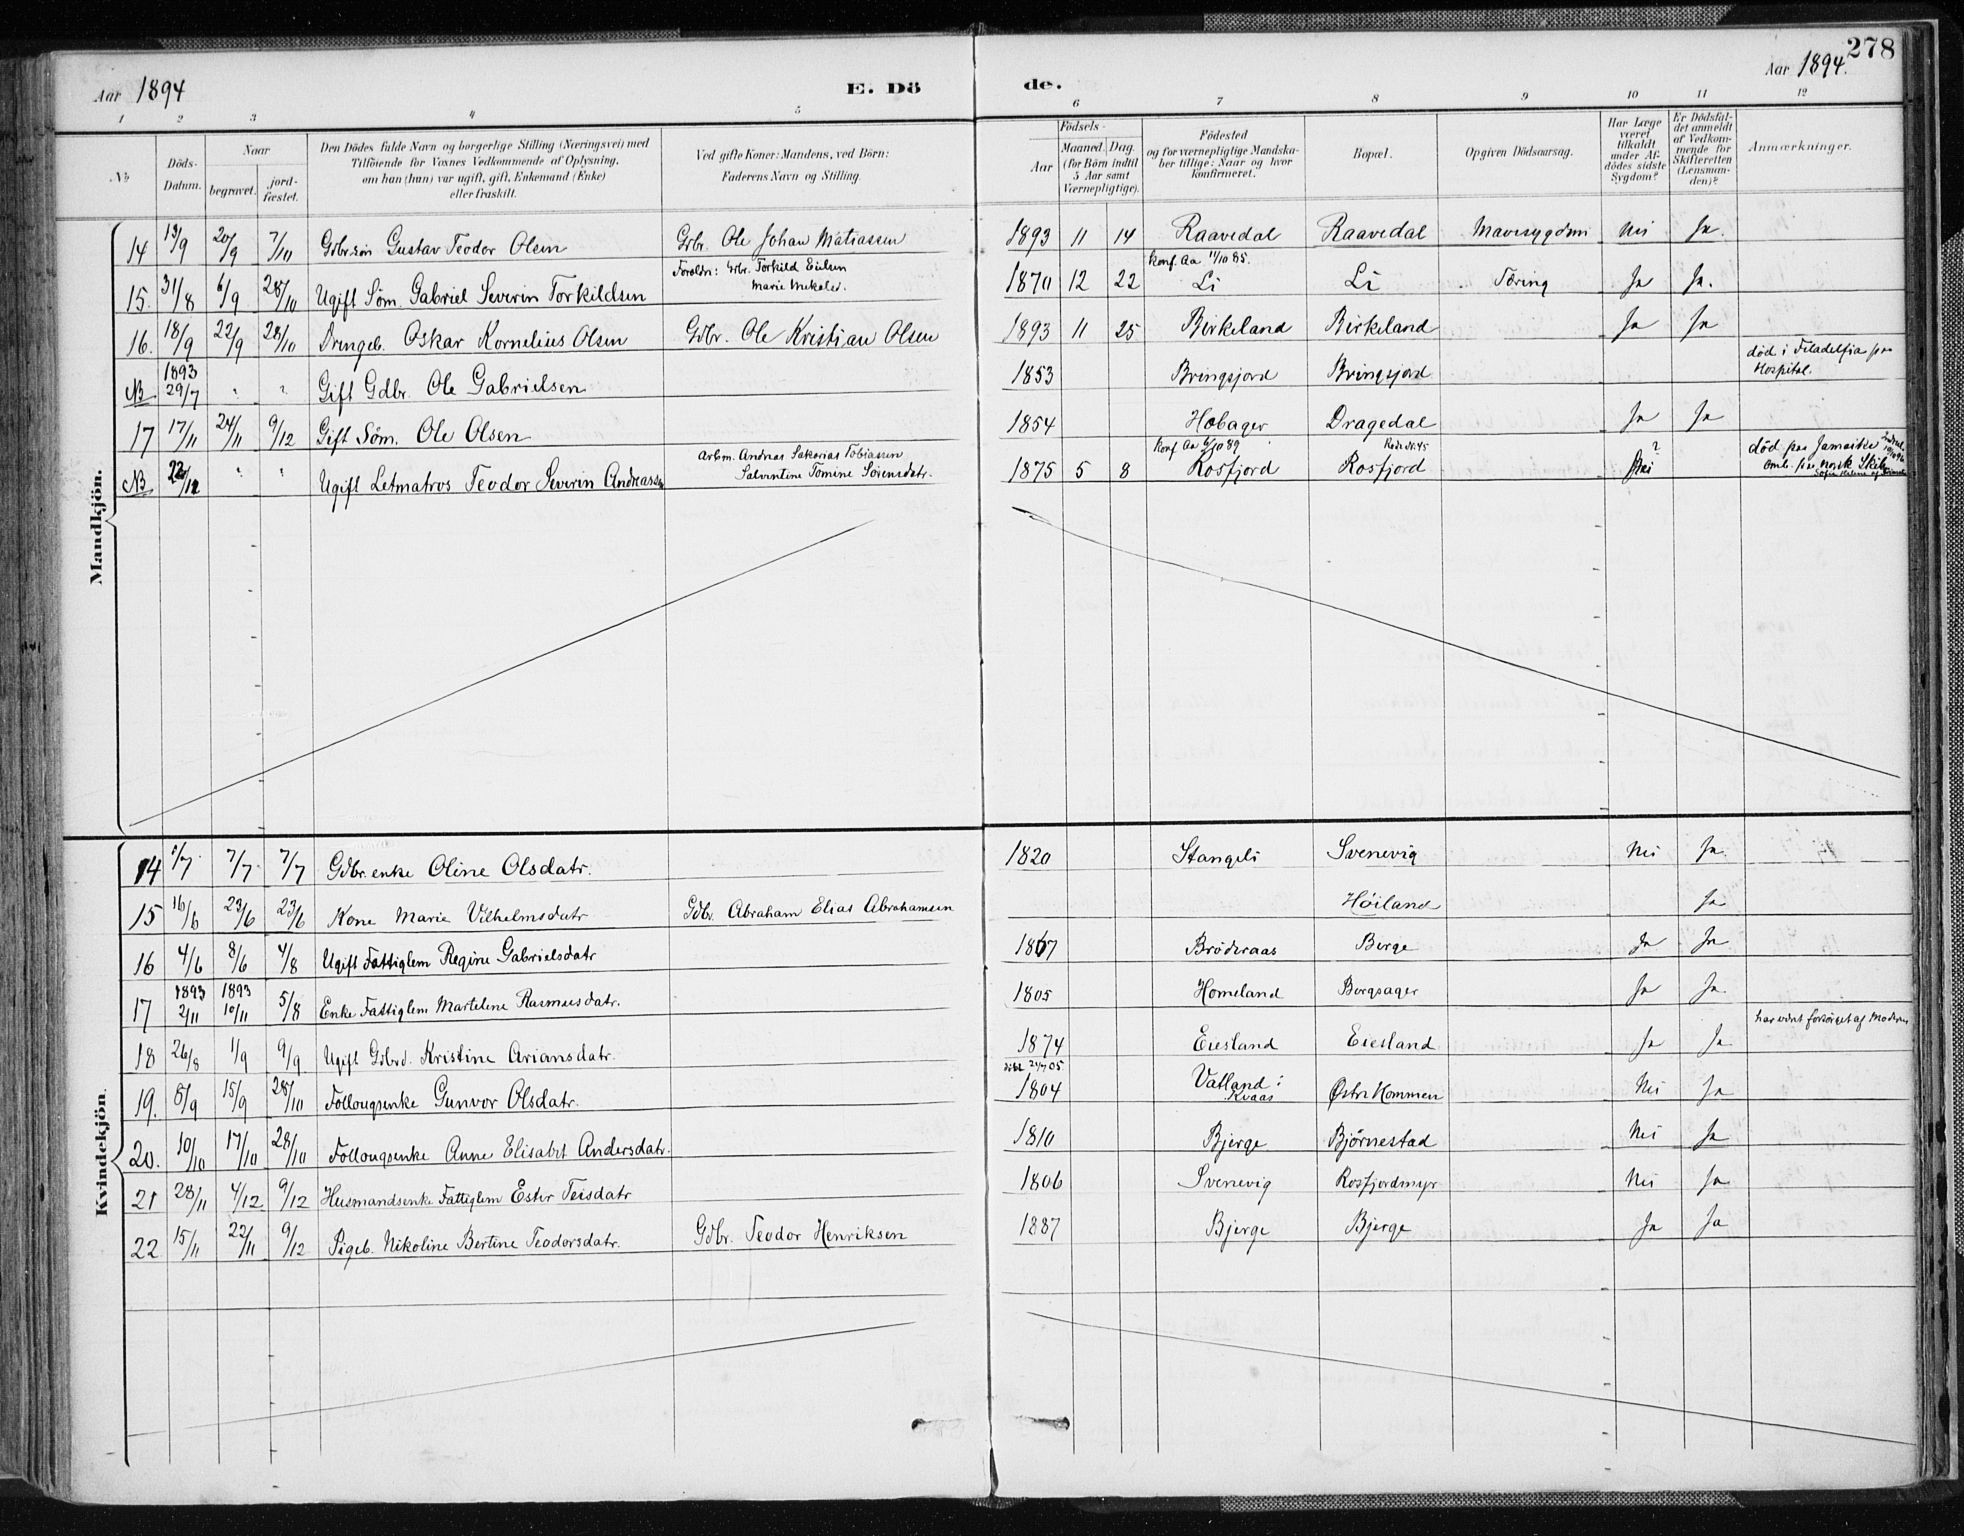 278
Aar 1894 E. Dö de. Aar 1894.
1 2 3 4 5 6 7 8 9 10 11 12
No Döds-Datum. Naar begravet. jord-fæstet. Den Dödes fulde Navn og borgerlige Stilling (Næringsvei) med Tilföiende for Voxnes Vedkommende af Oplysning, om han (hun) var ugift, gift, Enkemand (Enke) eller fraskilt. Ved gifte Koner: Mandens, ved Börn: Faderens Navn og Stilling. Födsels- Aar Maaned. Dag. (for Börn indtil 5 Aar samt Værnepligtige). Födested og for værnepligtige Mandskaber tillige: Naar og hvor Konfirmeret. Bopæl. Opgiven Dödsaarsag. Har Læge været tilkaldt under Afdödes sidste Sygdom? Er Dödsfaldet anmeldt af Vedkommende for Skifteretten (Lensmanden)? Anmærkninger.
Mandkjön.
14 13/9 20/9 7/10 Gdbr.sön Gustav Teodor Olsen Gdbr. Ole Johan Matiassen 1893 11 14 Raavedal Raavedal Mavesygdom Nei Ja.
Foreldr: Gdbr. Torkild Eielsen konf. Aa 11/10 85.
15. 31/8 6/9 28/10 Ugift Söm. Gabriel Severin Torkildsen Marie 1870 12 22 Li Li Tæring Ja Ja.
16. 18/9 22/9 28/10 Drengeb. Oskar Kornelius Olsen Gdbr. Ole Kristian Olsen 1893 11 25 Birkeland Birkeland Ja Ja
NB 1893 29/7 " " Gift Gdbr. Ole Gabrielsen 1853 Bringsjord Bringsjord död i Filadelfia paa Hospital.
17 17/11 24/11 9/12 Gift Söm. Ole Olsen 1854 Habager Dragedal Ja Ja
Arbm. Andreas Sakarias Tobiassen konf Aa 6/10 89
NB 22/12 " " Ugift Letmatros Teodor Severin Andreassen Salventine Tomine Sörensdatr. 1875 5 8 Rosfjord Rosfjord ? död paa Jamaika omb. paa norsk Skib
Kvindekjön.
14 1/7 7/7 7/7 Gdbr. enke Oline Olsdatr. 1820 Stangeli Svenevig Nei Ja.
15 16/6 23/6 23/6 Kone Marie Vilhelmsdatr Gdbr. Abraham Elias Abrahamsen Höiland Ja
16 4/6 8/6 4/8 Ugift Fattiglem Regine Gabrielsdatr 1817 Bröderaas Berge Ja Ja
17 1893 2/11 1893 10/11 5/8 Enke Fattiglem Martelene Rasmusdatr. 1805 Homeland Borgsager Ja Ja
har været forsörget af Moderen
18 26/8 1/9 9/9 Ugift Gdbrd. Kristine Ariansdatr. 1874 Eiesland Eiesland Ja Ja
19. 8/9 15/9 28/10 Follougsenke Gunvor Olsdatr. 1804 Vatland i Kvaas Östre Kommen Nei Ja
20. 10/10 17/10 28/10 Follougsenke Anne Elisabet Andersdatr. 1810 Bjerge Björnestad Nei Ja
21 28/11 4/12 9/12 Husmandsenke Fattiglem Ester Teisdatr 1806 Svenevig Rosfjordmyr Nei Ja
22 15/11 22/11 9/12 Pigeb. Nikoline Bertine Teodorsdatr. Gdbr. Teodor Henriksen 1887 Bjerge Bjerge Ja Ja